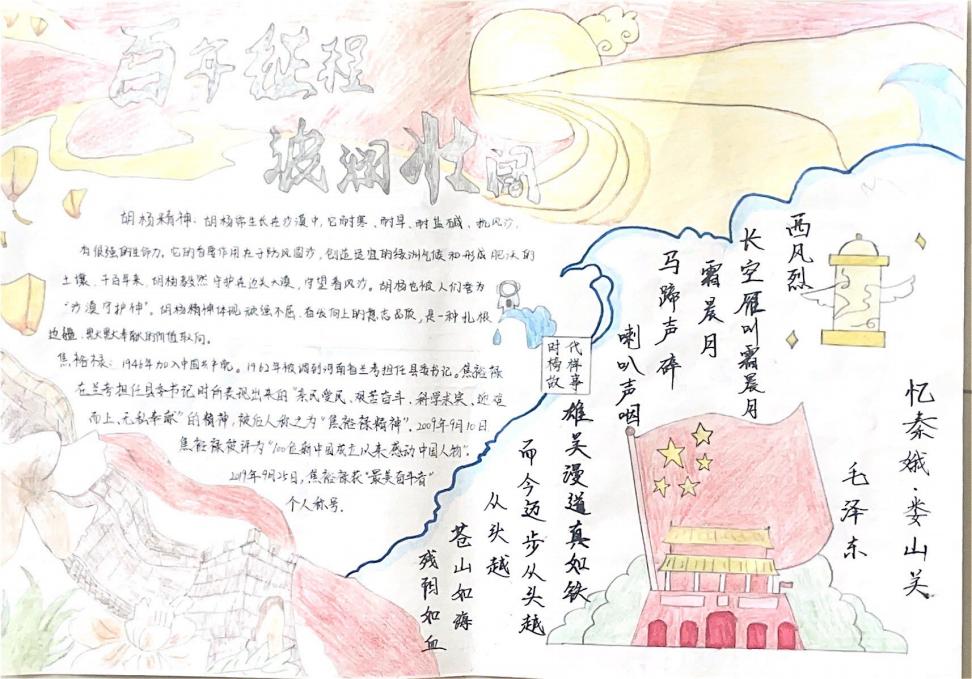 百年征程
波澜壮阔
胡杨精神：胡杨常生长在沙漠中，它耐寒、耐旱、耐盐碱、抗风沙，
有很强的生命力。它的首要作用在于防风固沙，创造适宜的绿洲气候和形成肥沃的
土壤，千百年来，胡杨毅然守护在边关大漠，守望着风沙。胡杨也被人们誉为
“沙漠守护神”。胡杨精神体现顽强不屈、奋发向上的意志品质，是一种扎根
边疆、默默奉献的价值取向。
焦裕禄：1946年加入中国共产党。1962年被调到河南省兰考担任县委书记。焦裕禄
在兰考担任县委书记时所表现出来的“亲民爱民、艰苦奋斗、科学求实、迎难
而上、无私奉献”的精神，被后人称之为“焦裕禄精神”。2009年9月10日
焦裕禄被评为“100位新中国成立以来感动中国人物”。
2019年9月25日，焦裕禄获“最美奋斗者”
个人称号。
时代楷模故事
忆秦娥·娄山关
毛泽东
西风烈
长空雁叫霜晨月
霜晨月
马蹄声碎
喇叭声咽
雄关漫道真如铁
而今迈步从头越
从头越
苍山如海
残阳如血